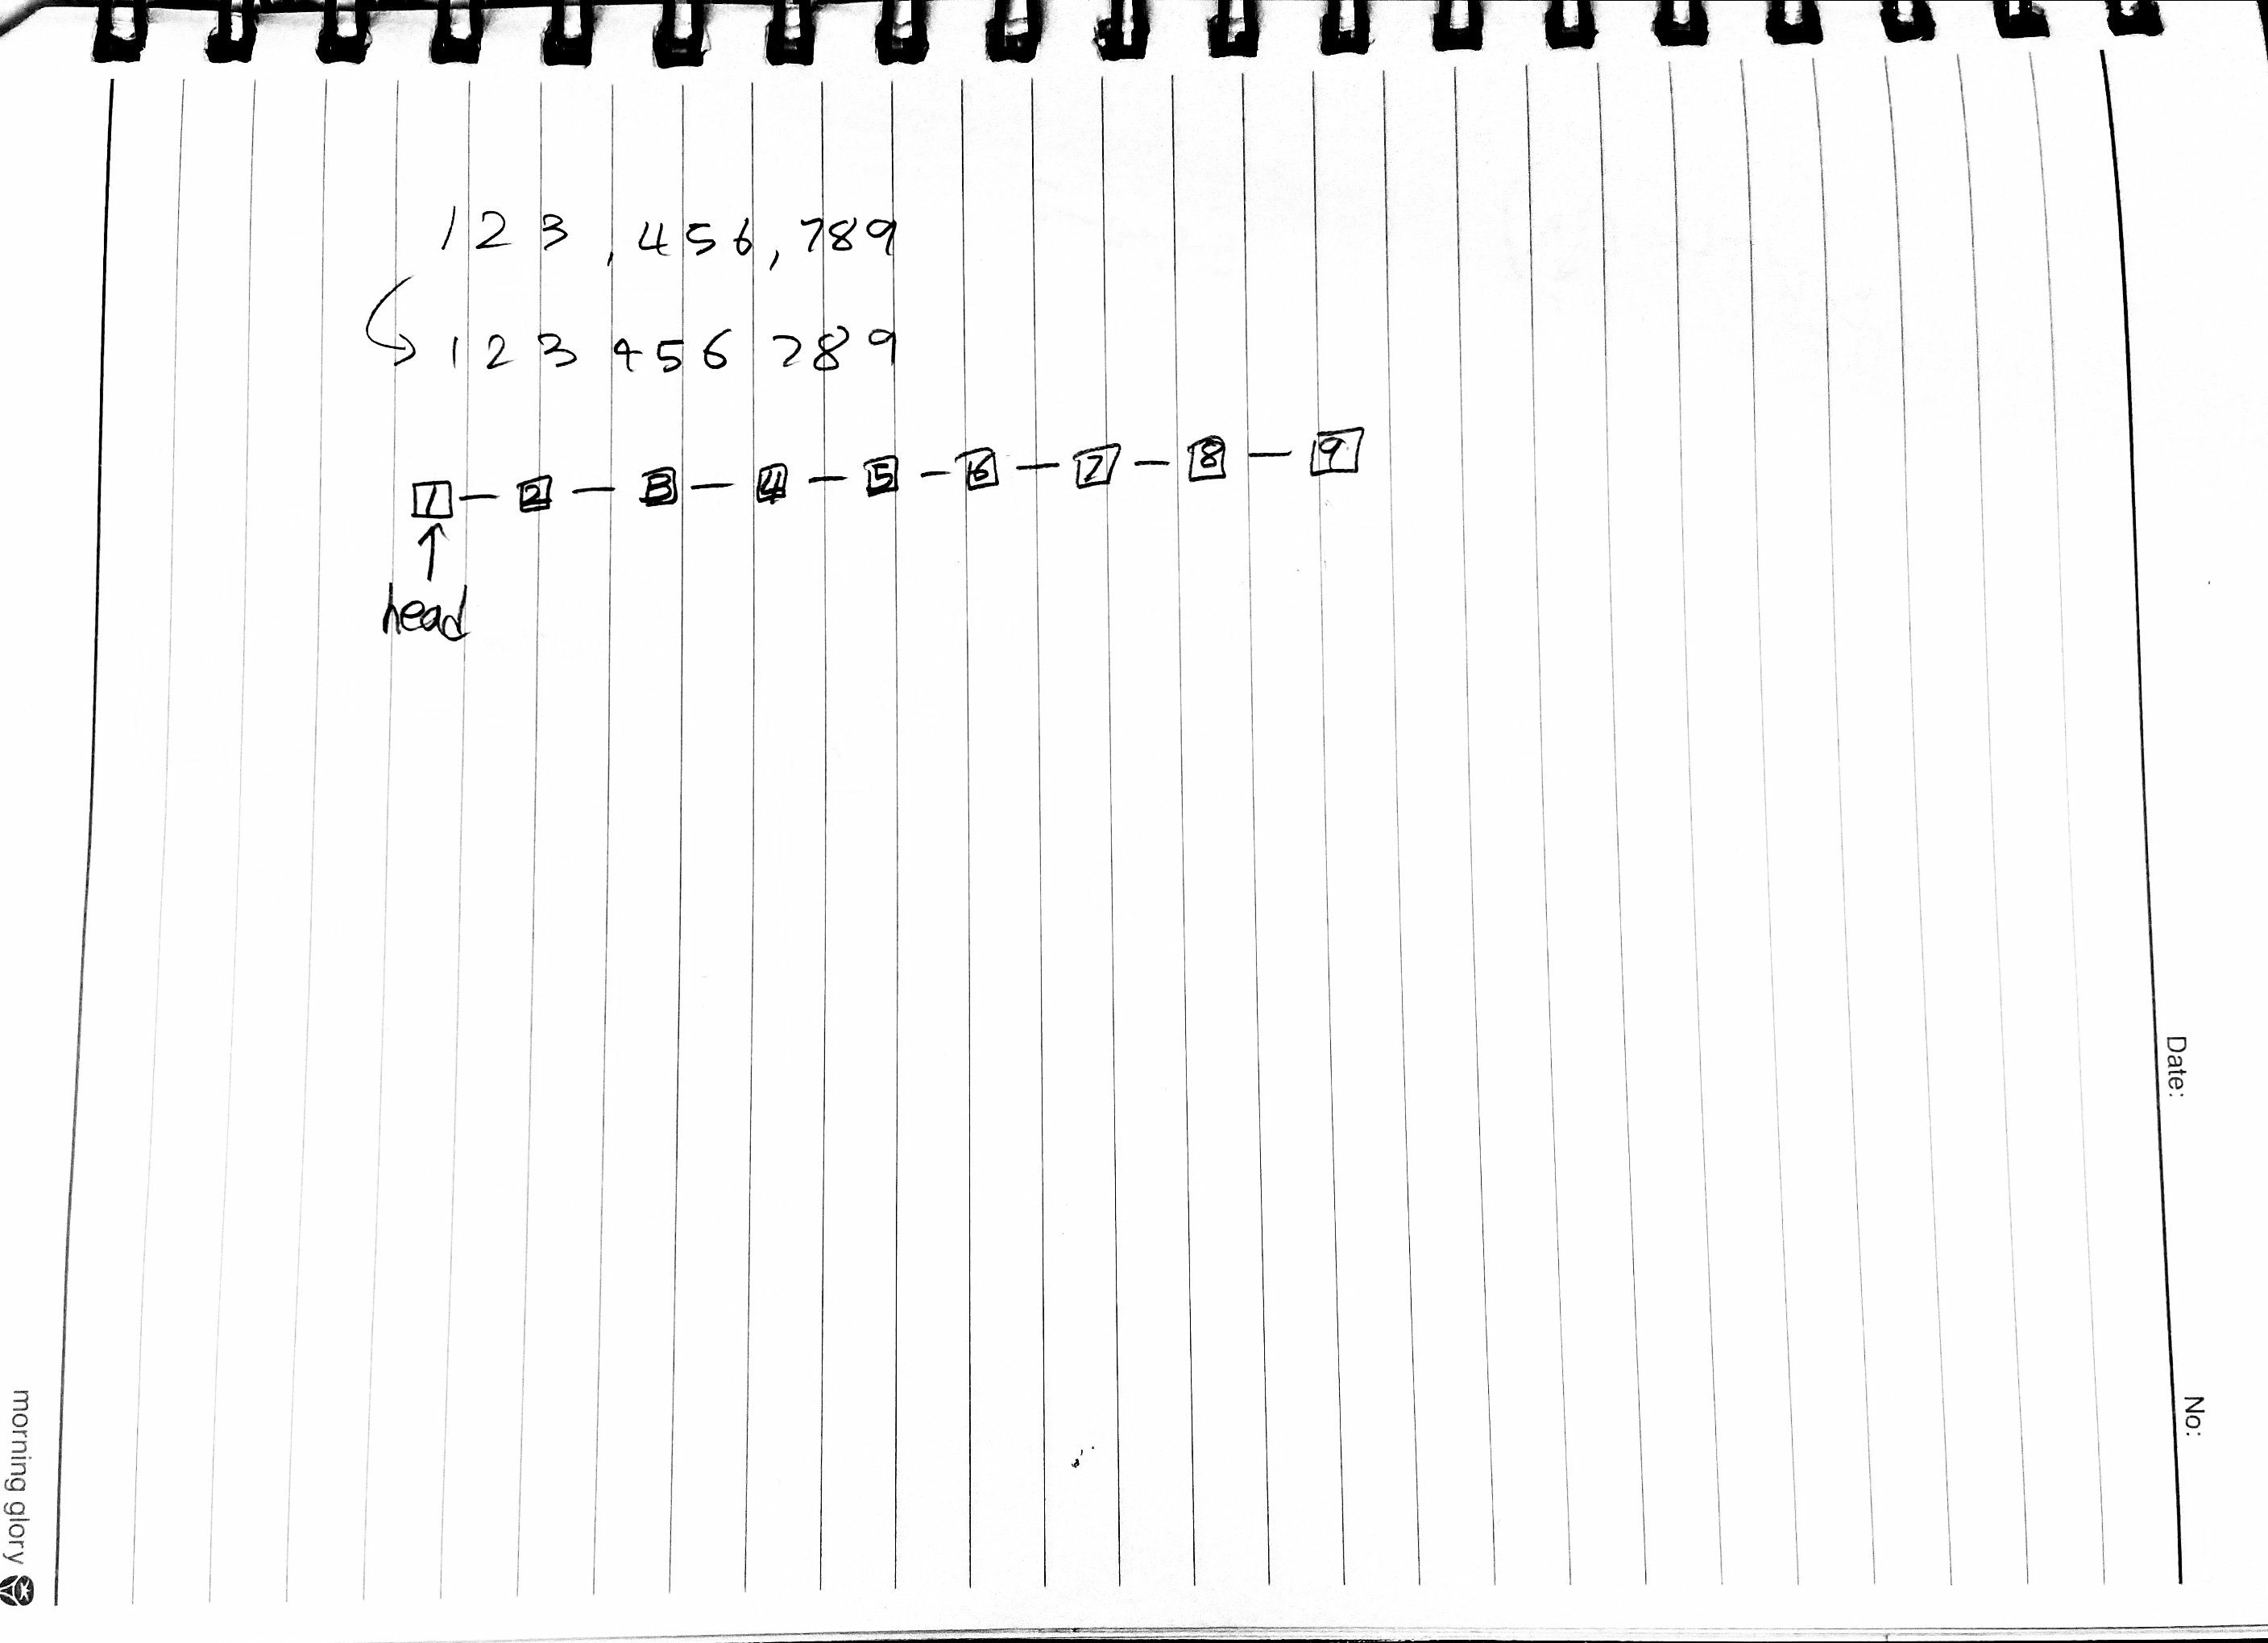 1 2 3 , 4 5 6 , 7 8 9
1 2 3 4 5 6 7 8 9
1 — 2 — 3 — 4 — 5 — 6 — 7 — 8 — 9
↑
head
Date:
No:
morning glory